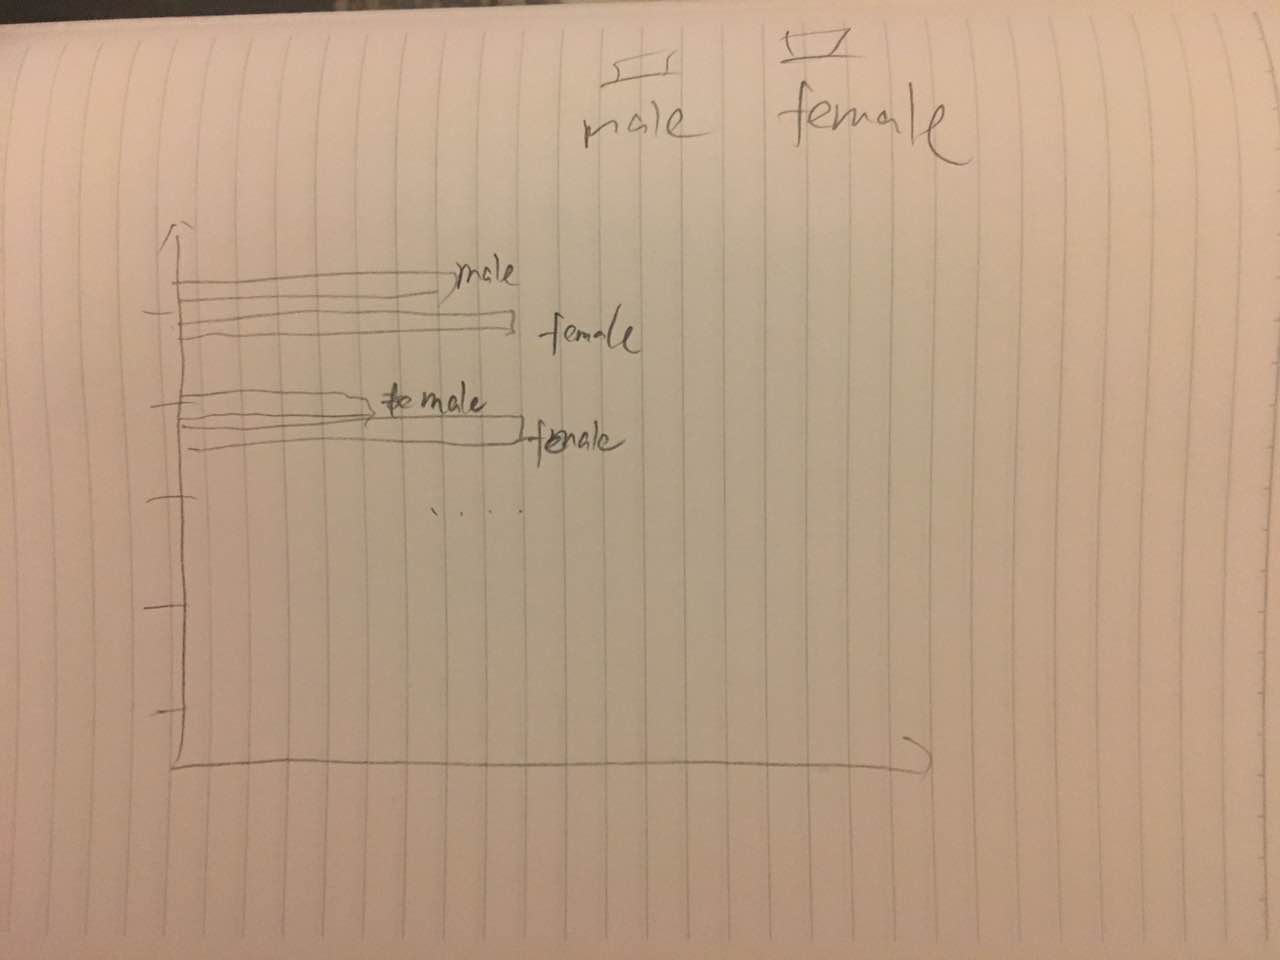 male female
male
female
male
female